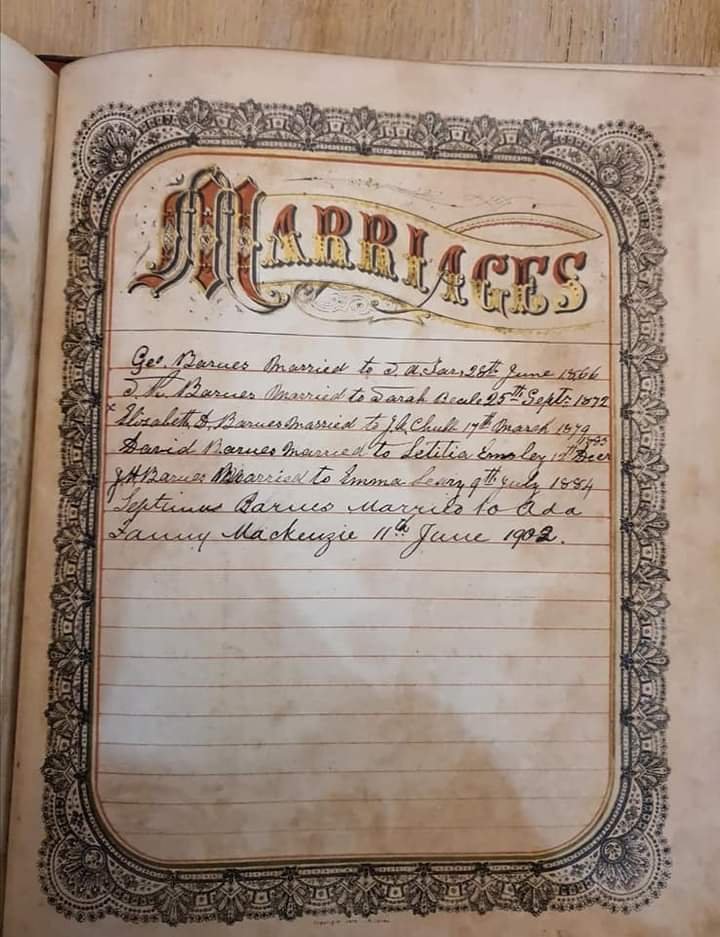 MARRIAGES
Geo. Barnes Married to 28th June 1866
Barnes Married to Sarah 25th Sept. 1872
x Elizabeth D. Barnes Married to J.A. Chubb 17th March 1879
1885
David Barnes Married to Letitia Emsley
J H Barnes Married to Emma Seary 9th July 1884
Septimus Barnes Married to Ada
Fanny Mackenzie 11th June 1902.